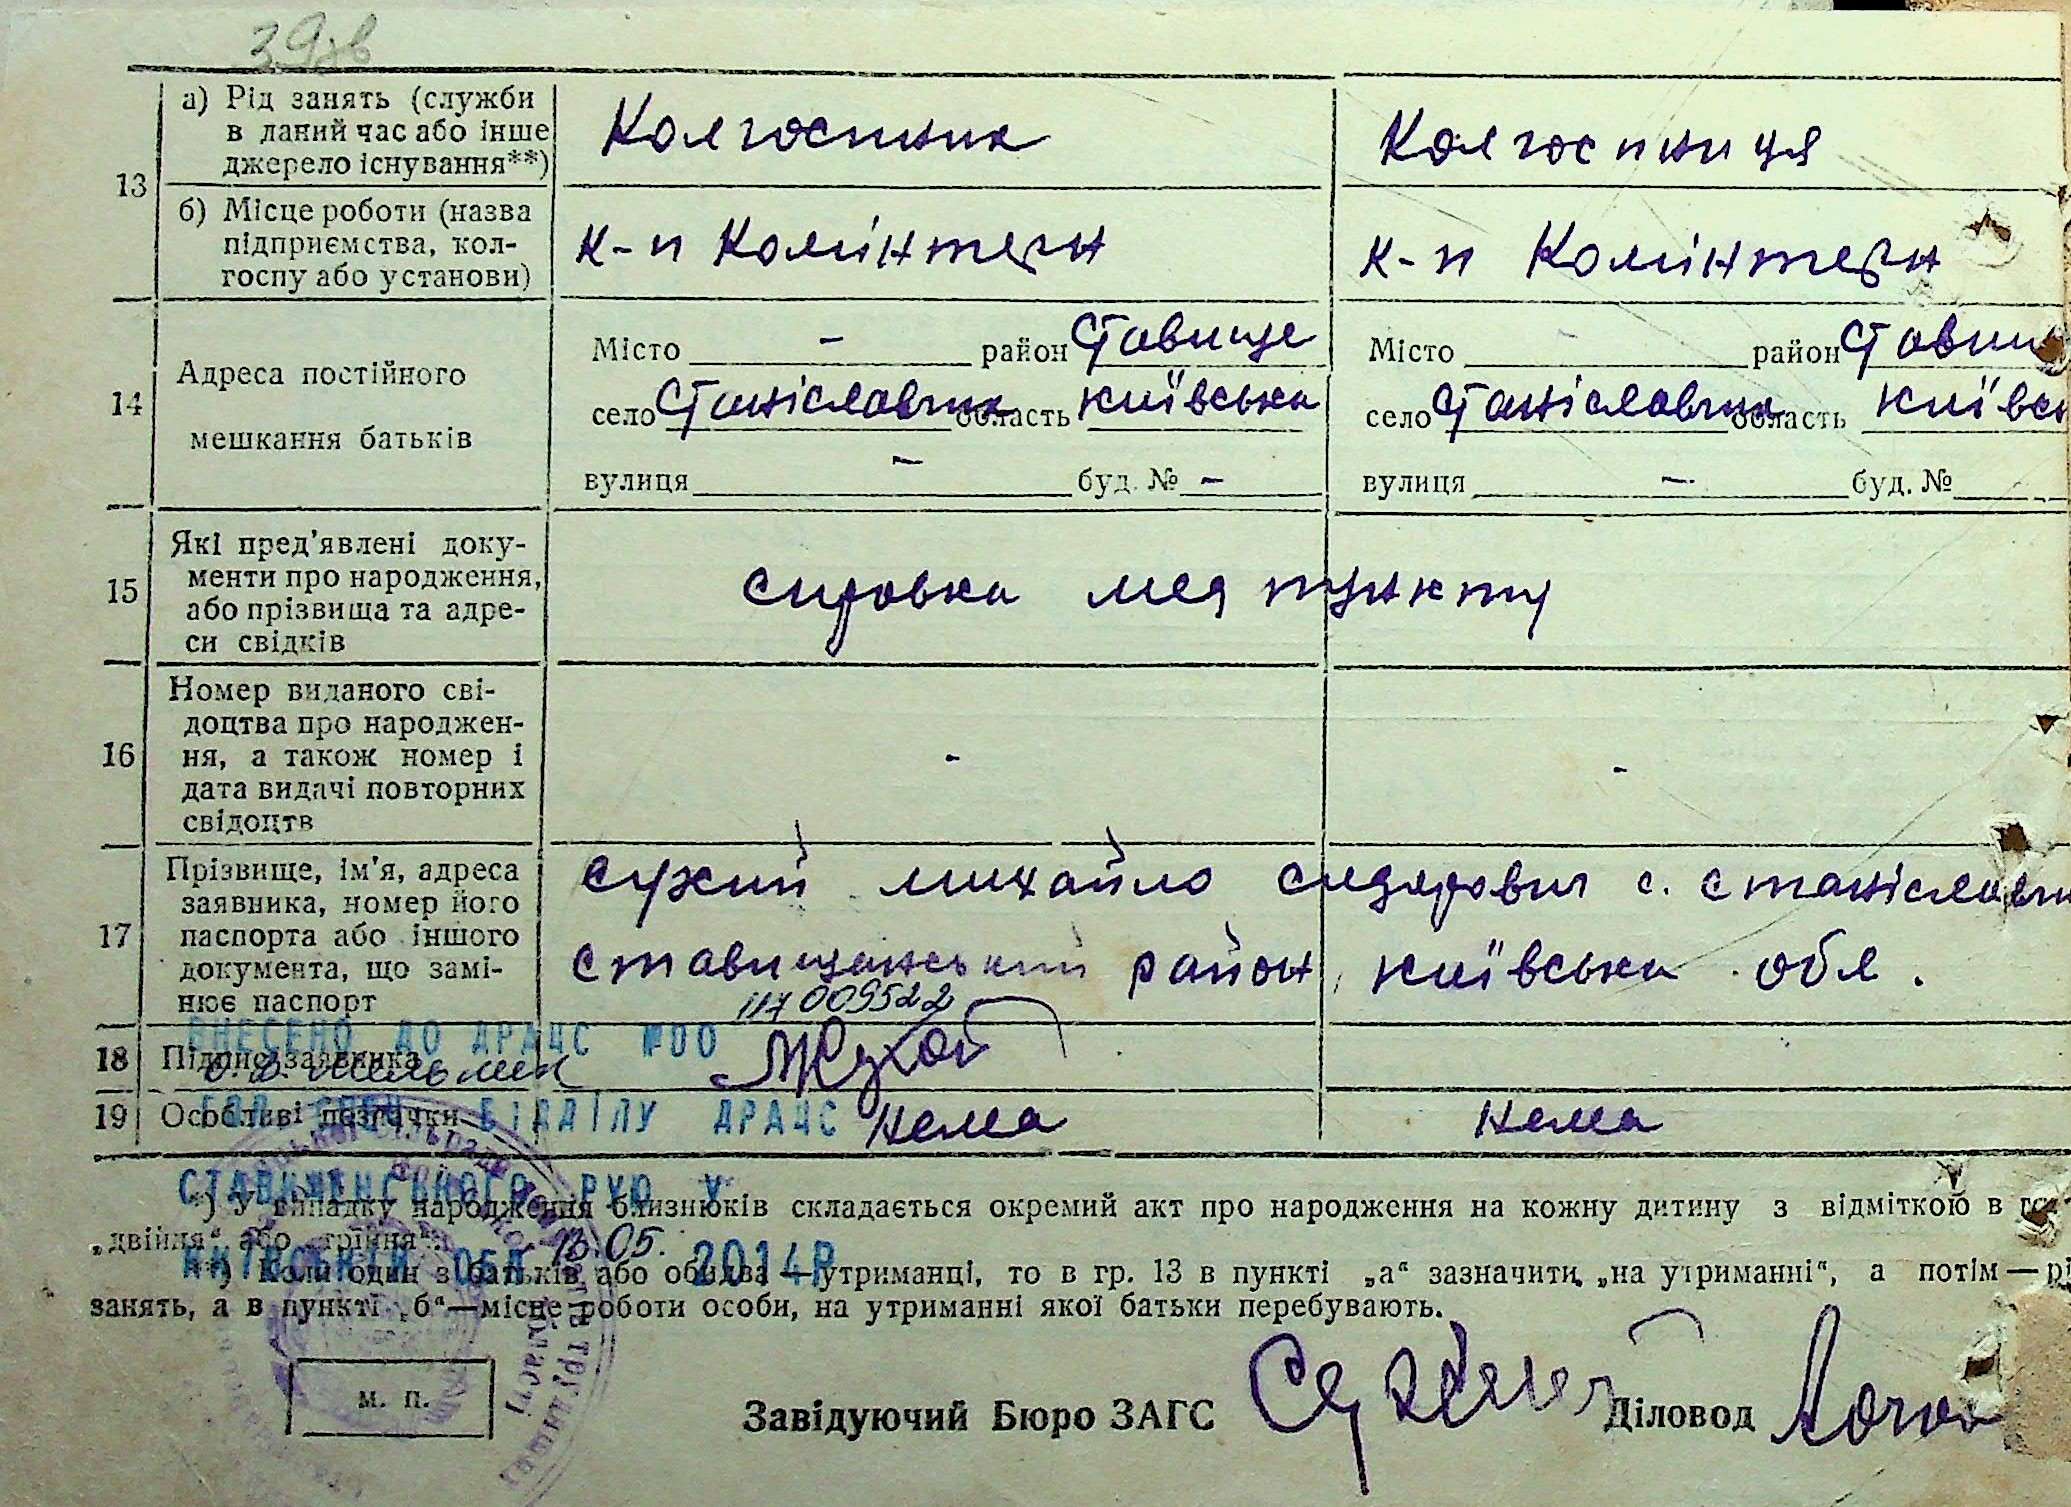 39зв
13
а) Рід занять (служби
в даний час або інше
джерело існування**)
Колгоспник
Колгоспниця
б) Місце роботи (назва
підприємства, кол-
госпу або установи)
к-п Комінтерн
к-п Комінтерн
14
Адреса постійного
мешкання батьків
Місто - район Ставище
село Станіславчик область Київська
вулиця - буд. № -
Місто - район Стави
село Станіславчик область Київсь
вулиця - буд. №
15
Які пред'явлені доку-
менти про народження,
або прізвища та адре-
си свідків
справка мед пункту
16
Номер виданого сві-
доцтва про народжен-
ня, а також номер і
дата видачі повторних
свідоцтв
-
-
17
Прізвище, ім'я, адреса
заявника, номер його
паспорта або іншого
документа, що замі-
нює паспорт
Сухий Михайло Сидорович с. Станіславчи
Ставищанський район, Київська обл.
009522
18 Підпис заявника
19 Особливі позначки Нема Нема
ВНЕСЕНО ДО ДРАЦС №00
ВІДДІЛУ ДРАЦС
СТАВИЩЕНСЬКОГО РУЮ У
КИЇВСЬКІЙ ОБЛ. 13.05. 2014Р
*) У випадку народження близнюків складається окремий акт про народження на кожну дитину з відміткою в
„двійня“ або „трійня“.
**) Коли один з батьків або обидва — утриманці, то в гр. 13 в пункті „а“ зазначити „на утриманні“, а потім — рі
занять, а в пункті „б“—місце роботи особи, на утриманні якої батьки перебувають.
м. п.
Завідуючий Бюро ЗАГС
Діловод